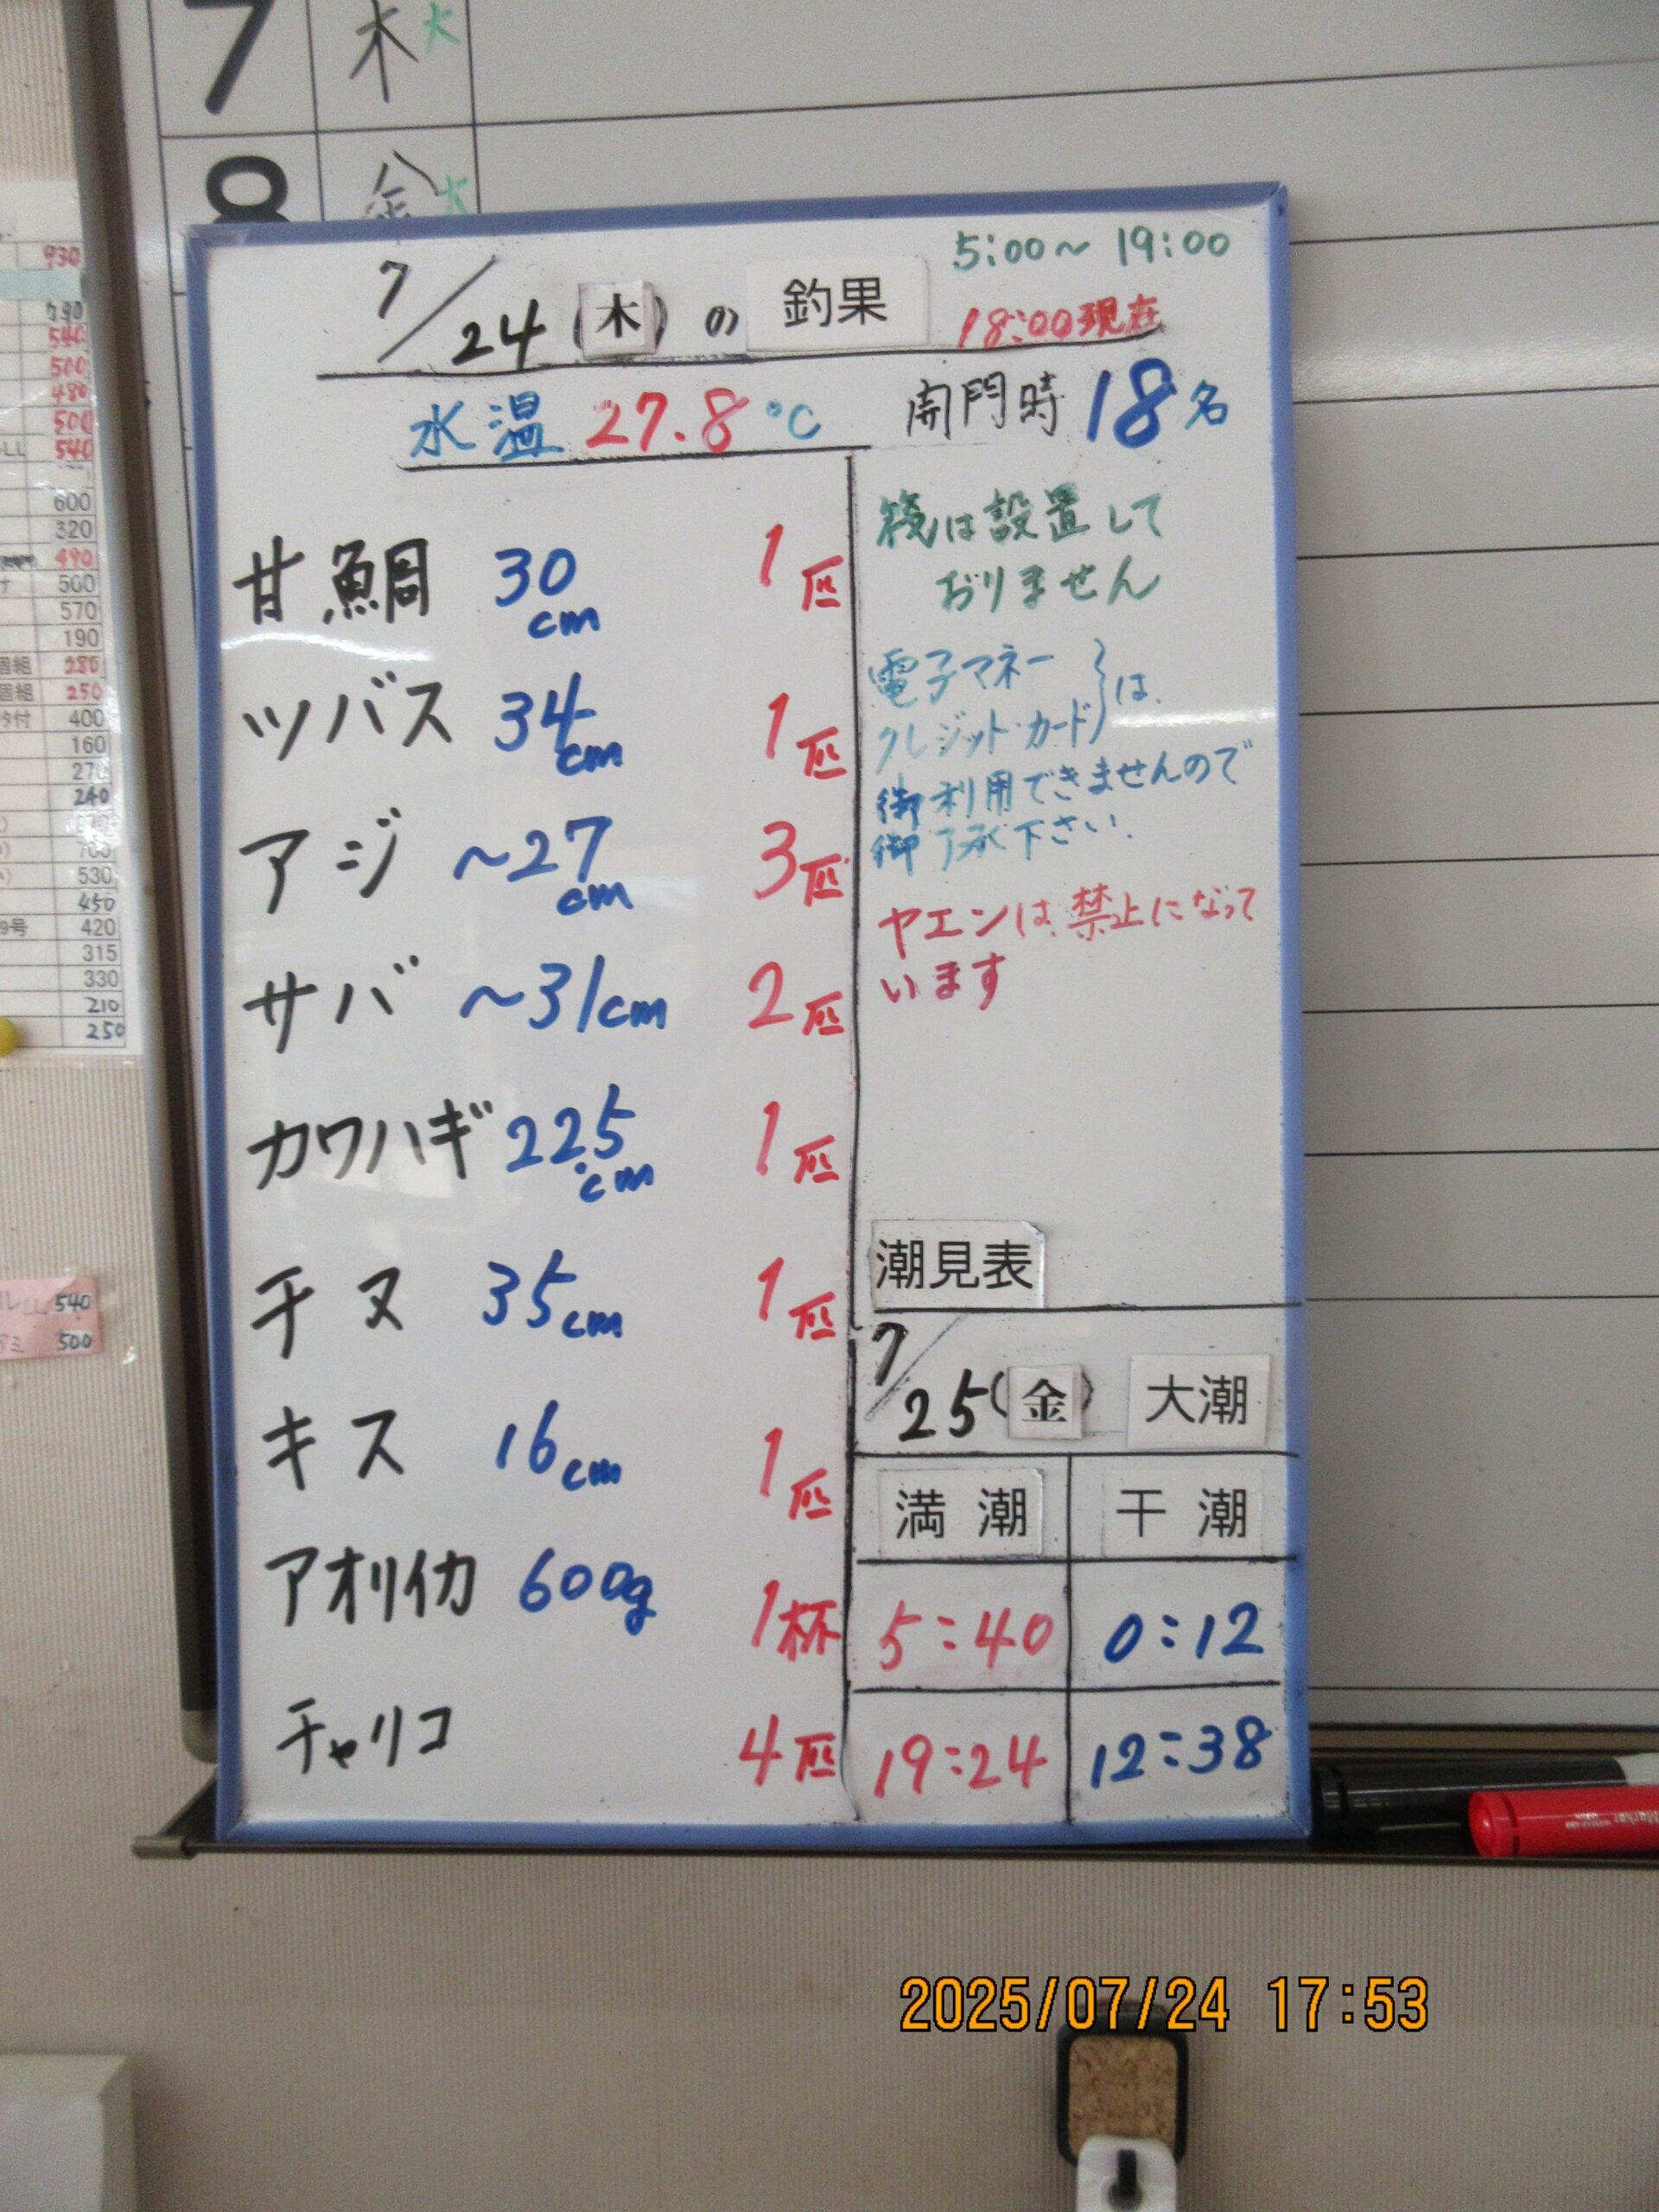 7 木 大
8 金 大
7/24 (木) の 釣果
5:00～19:00
18:00現在
水温 27.8℃
開門時 18名
甘鯛 30cm 1匹
ツバス 34cm 1匹
アジ ～27cm 3匹
サバ ～31cm 2匹
カワハギ 22.5cm 1匹
チヌ 35cm 1匹
キス 16cm 1匹
アオリイカ 600g 1杯
チャリコ 4匹
筏は設置して
おりません
電子マネー
クレジットカード}は
御利用できませんので
御了承下さい.
ヤエンは禁止になって
います
潮見表
7/25(金) 大潮
満潮 干潮
5:40 0:12
19:24 12:38
930
540
500
480
500
LL 540
600
320
490
500
570
190
個組 280
個組 250
付 400
160
270
240
530
450
9号 420
315
330
210
250
LL 540
500
Marker
2025/07/24 17:53